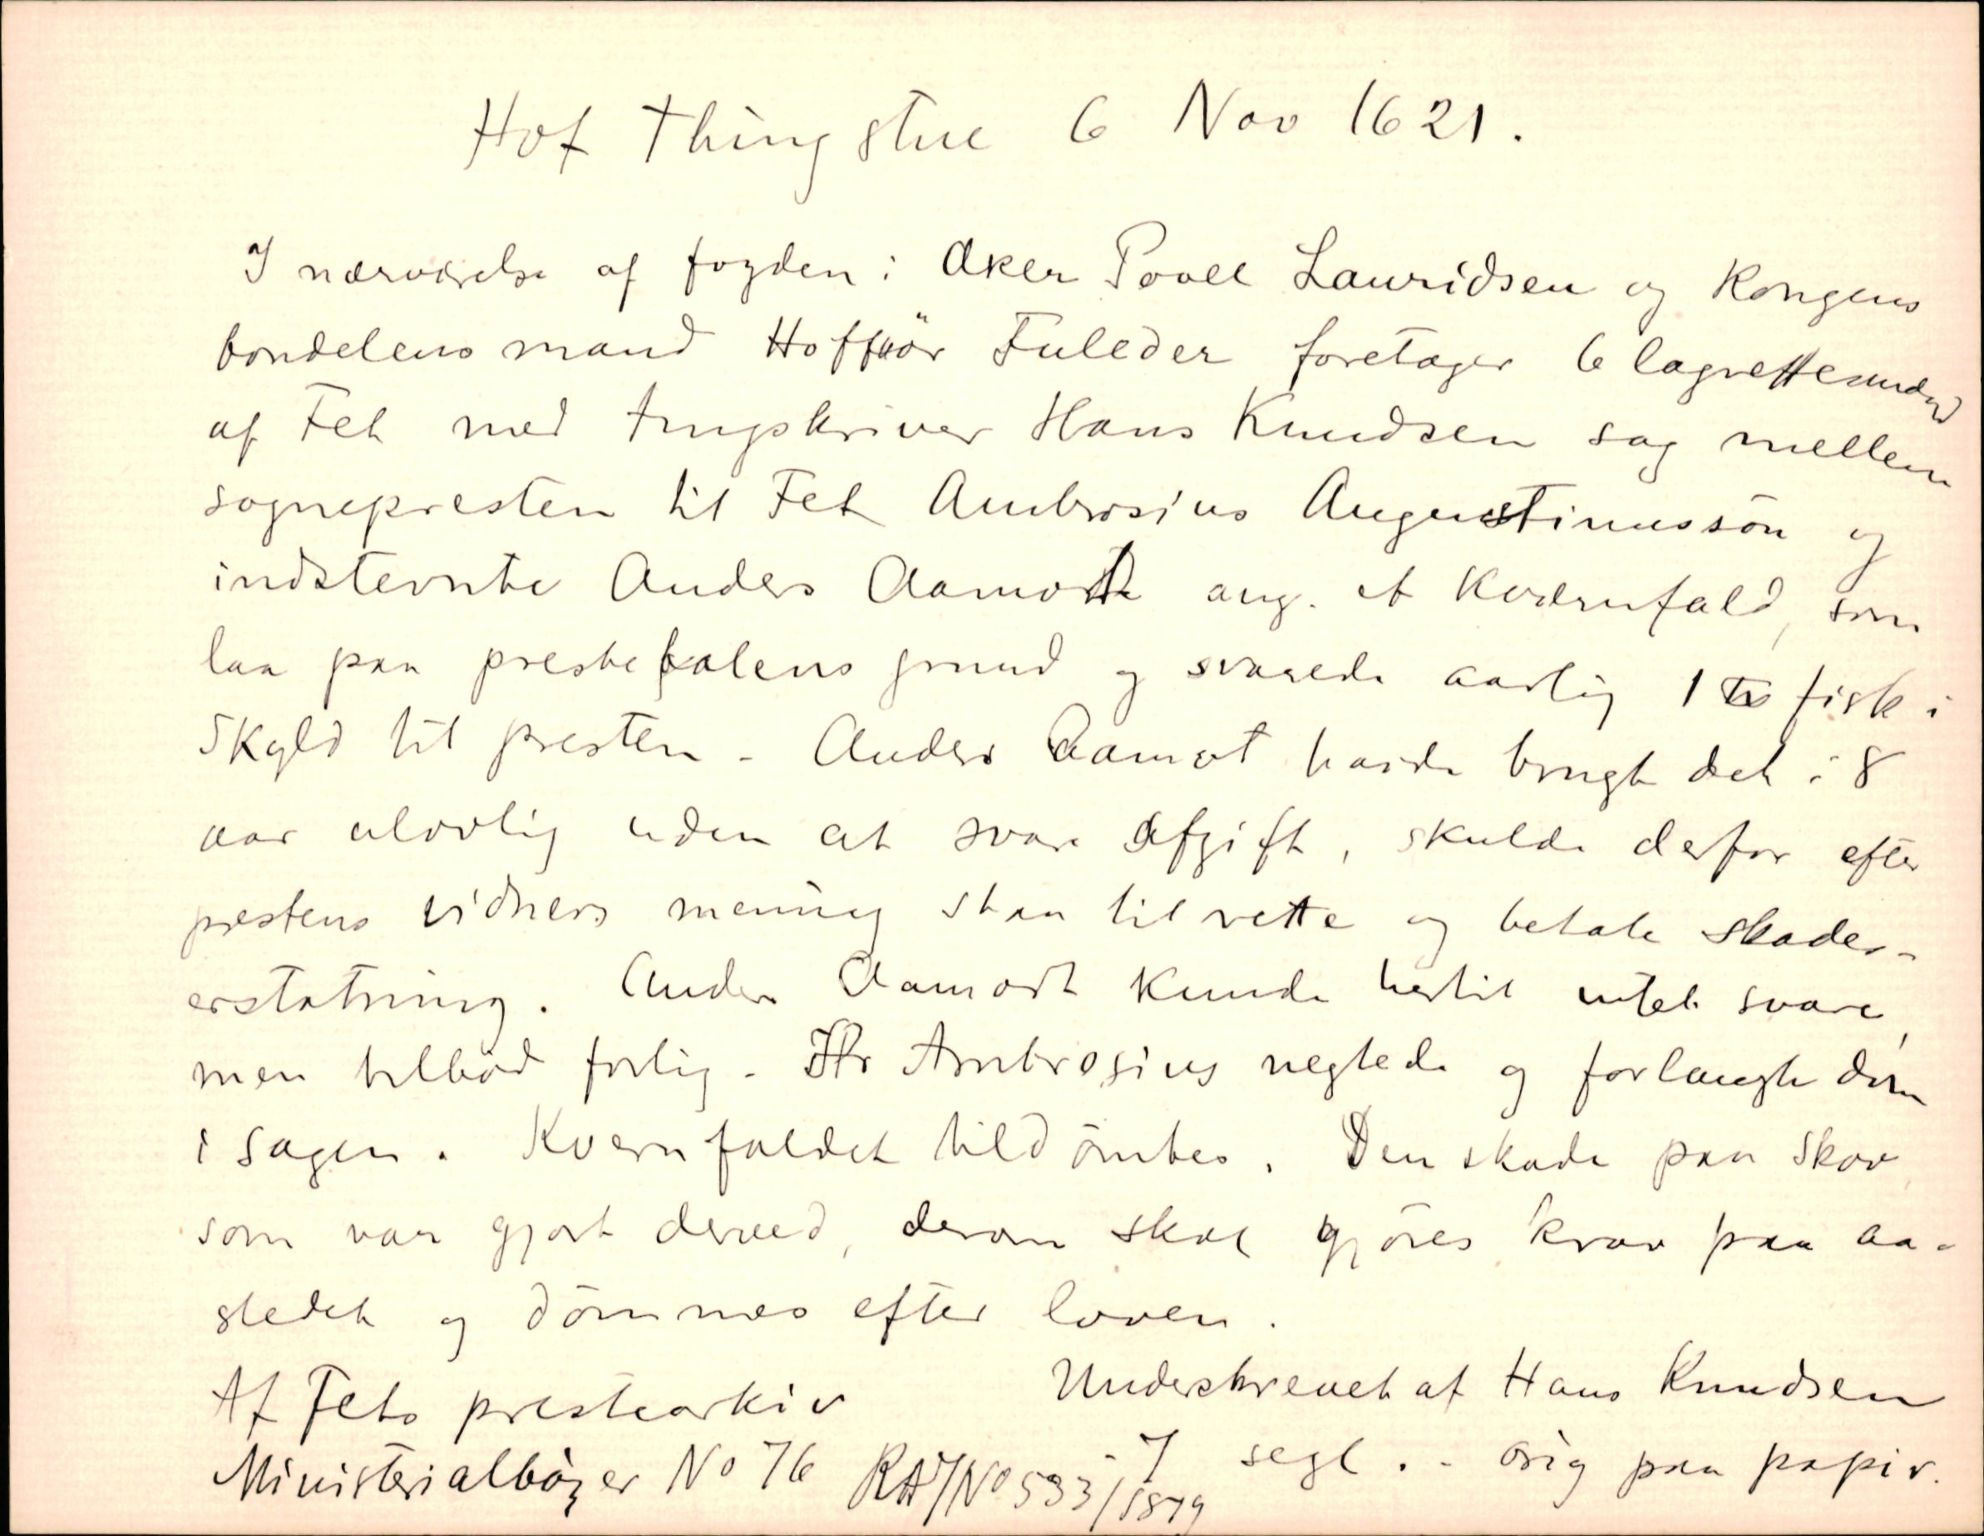 Hof Thingstue 6 Nov 1621.
I nærværelse af fogden i Aker Povel Lauridsen og Kongens
bondelensmand Hoffvör Fuleder foretager 6 lagrettesmænd
af Fet med tingskriver Hans Knudsen sag mellem
sognepresten til Fet Ambrosius Augustinussön og
indstevnte Anders Aamodt ang. et Kværnfald, som
laa paa prestebolens grund og svarede aarlig 1 fisk i
Skyld til presten - Anders Aamot havde brugt det i 8
aar ulovlig uden at svare Afgift, skulde derfor efter
prestens vidners mening staa til rette og betale skades-
erstatning. Anders Aamodt kunde hertil intet svare,
men tilböd forlig - Hr Ambrosius negtede og forlangte dom
i sagen. Kvernfaldet tildömtes. Den skade paa Skov
som var gjort derved, derom skal gjöres krav paa aa-
stedet og dömmes efter loven.
Af Fets prestearkiv Underskrevet af Hans Knudsen
Ministerialbøger No 76 RA J/No 533/1879 - 7 segl. - orig paa papir.